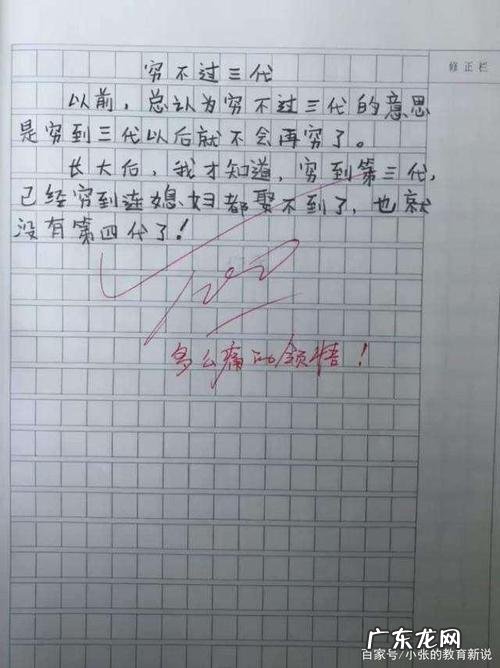 穷不过三代
修正栏
以前，总认为穷不过三代的意思
是穷到三代以后就不会再穷了。
长大后，我才知道，穷到第三代，
已经穷到连媳妇都娶不到了，也就
没有第四代了！
100
多么痛的领悟！
广东龙网
百家号/小张的教育新说